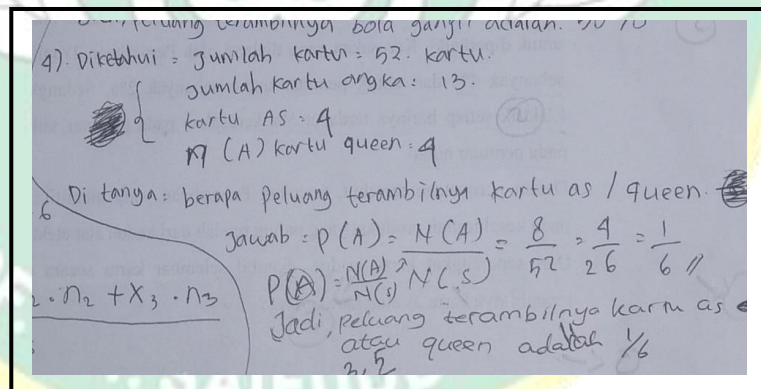 peluang terambilnya bola ganjil adalah. 50 %
4). Diketahui = Jumlah kartu = 52. kartu.
Jumlah kartu angka : 13.
kartu AS = 4
n (A) kartu queen = 4
6
Di tanya = berapa peluang terambilnya kartu as / queen.
Jawab = P (A) = N (A) / N (S) = 8/52 = 4/26 = 1/6 //
P(A) = N(A)/N(S)
2 . n2 + X3 . n3
Jadi, peluang terambilnya kartu as
atau queen adalah 1/6